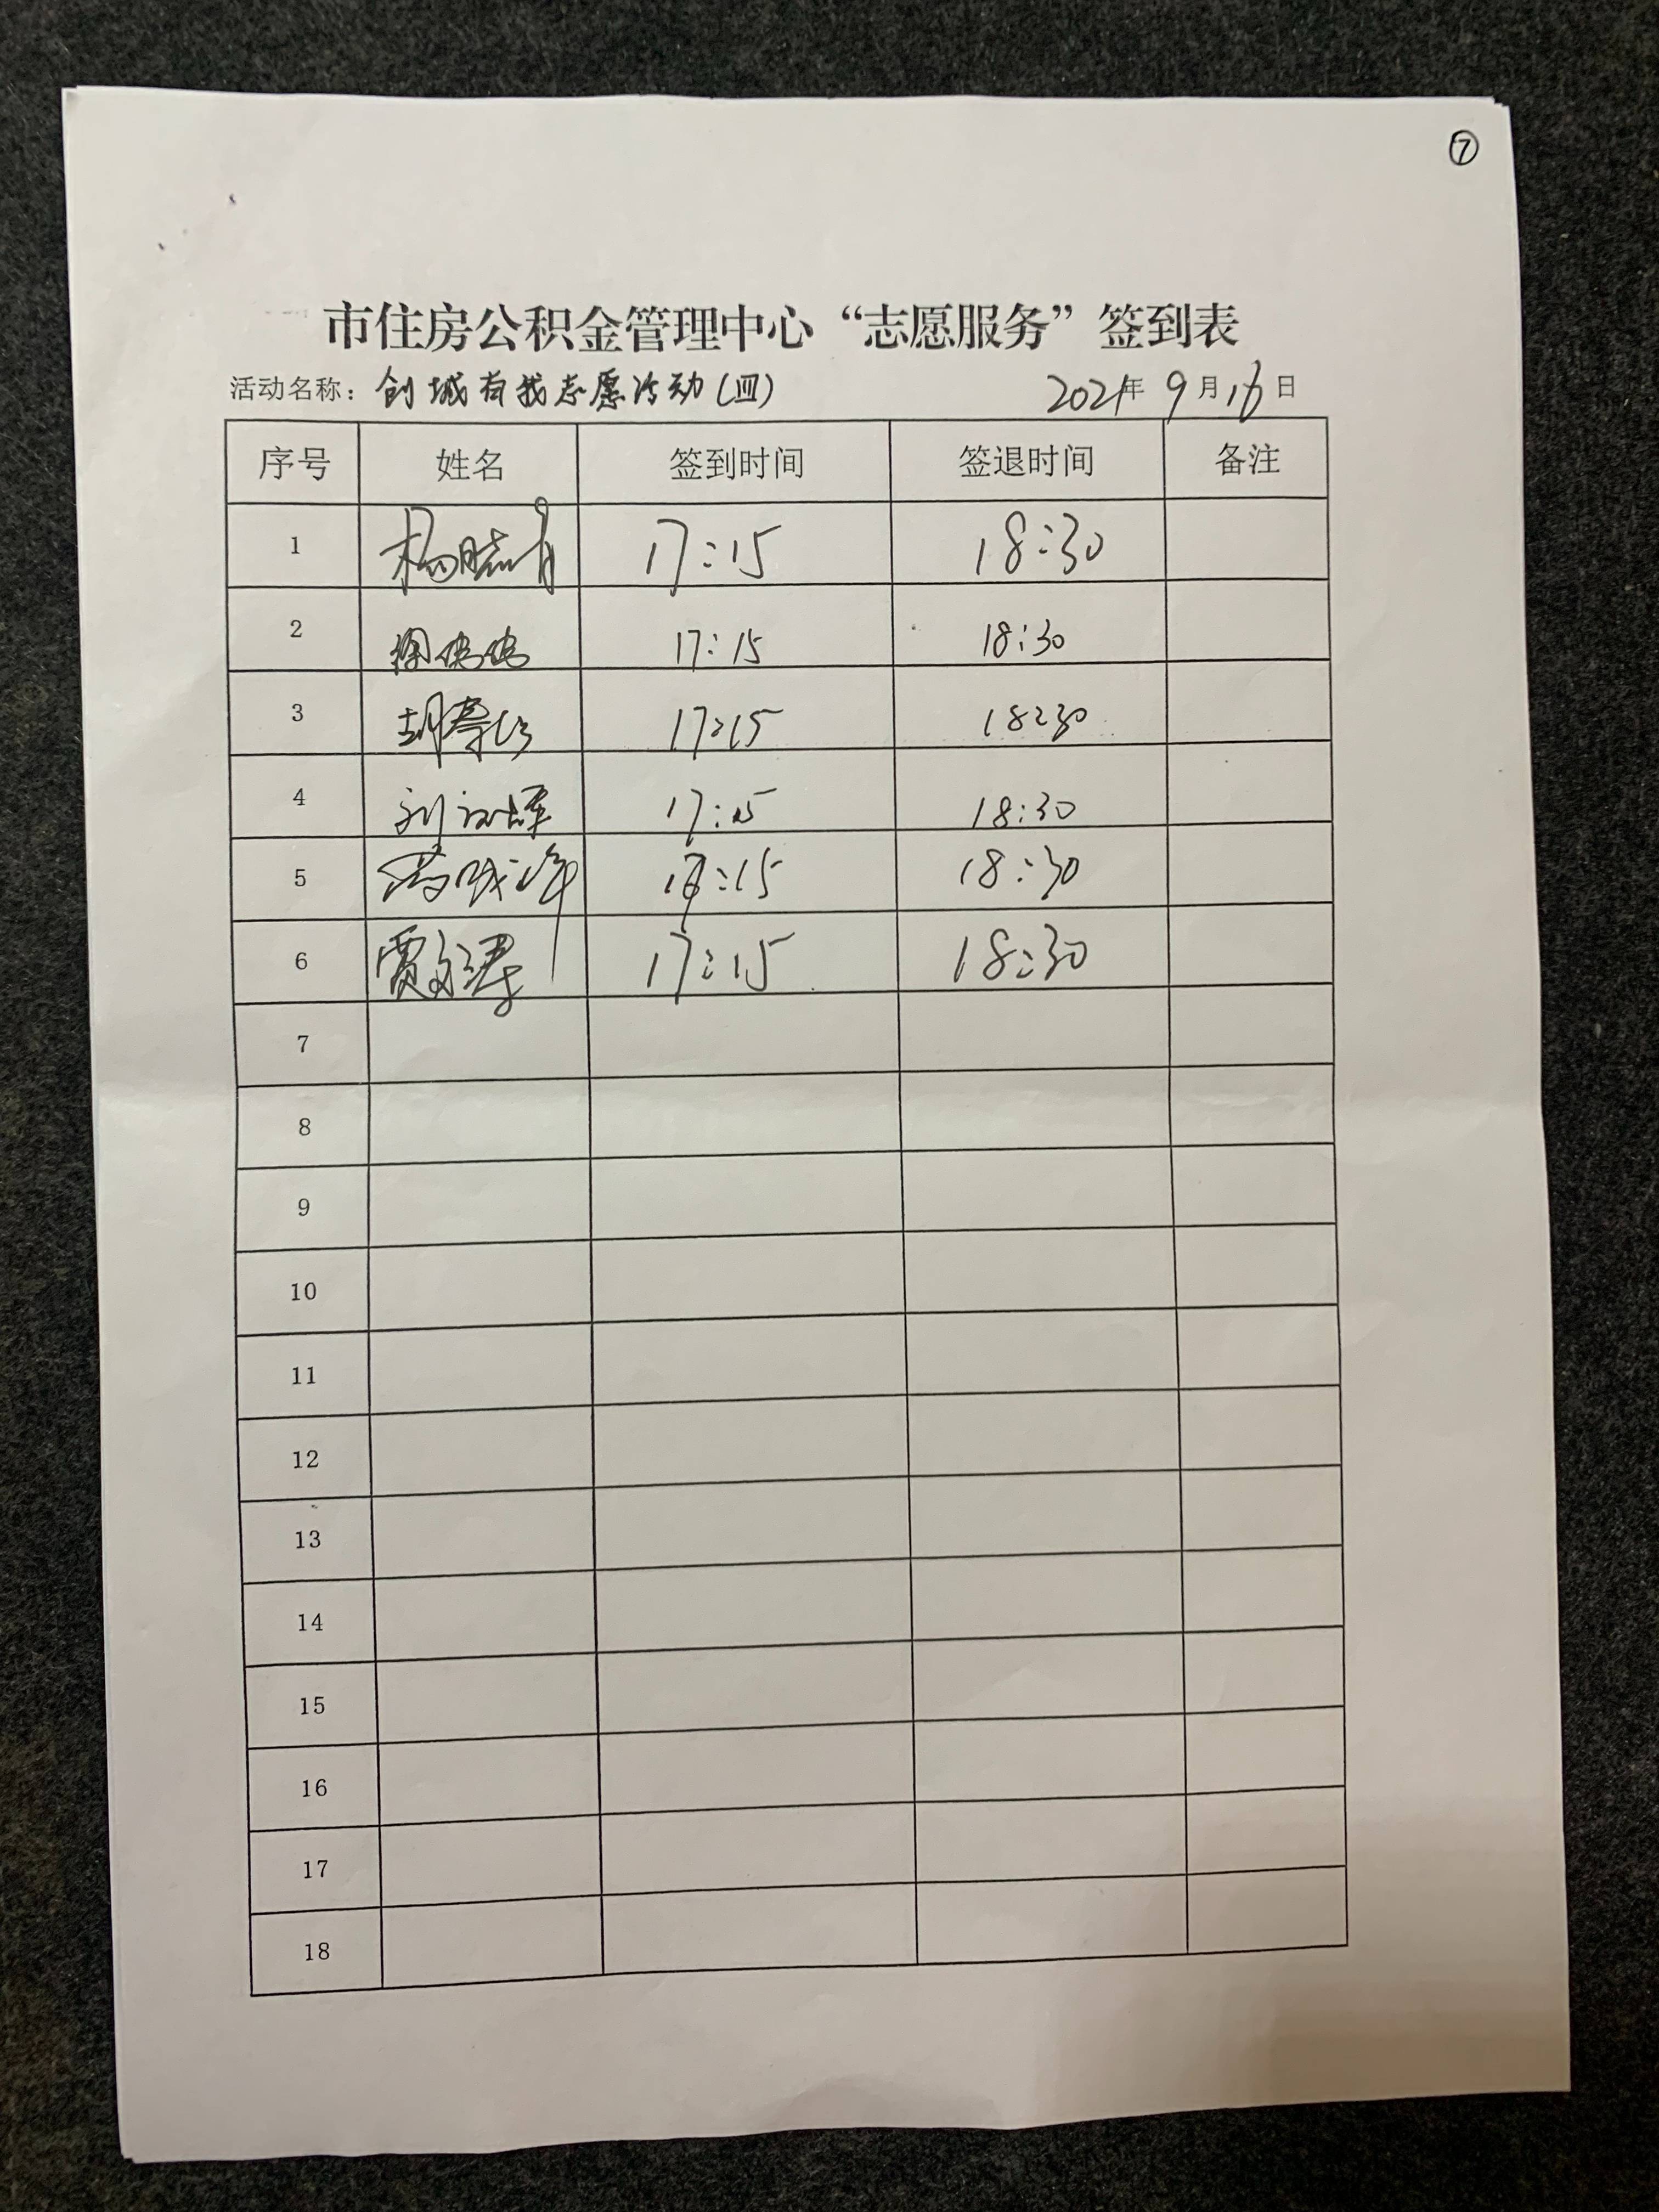 ⑦
市住房公积金管理中心“志愿服务”签到表
活动名称：创城有我志愿活动(四) 2021年9月16日
序号 姓名 签到时间 签退时间 备注
1 杨晓 17:15 18:30
2 17:15 18:30
3 胡 17:15 18:30
4 刘 17:15 18:30
5 17:15 18:30
6 贾 17:15 18:30
7
8
9
10
11
12
13
14
15
16
17
18